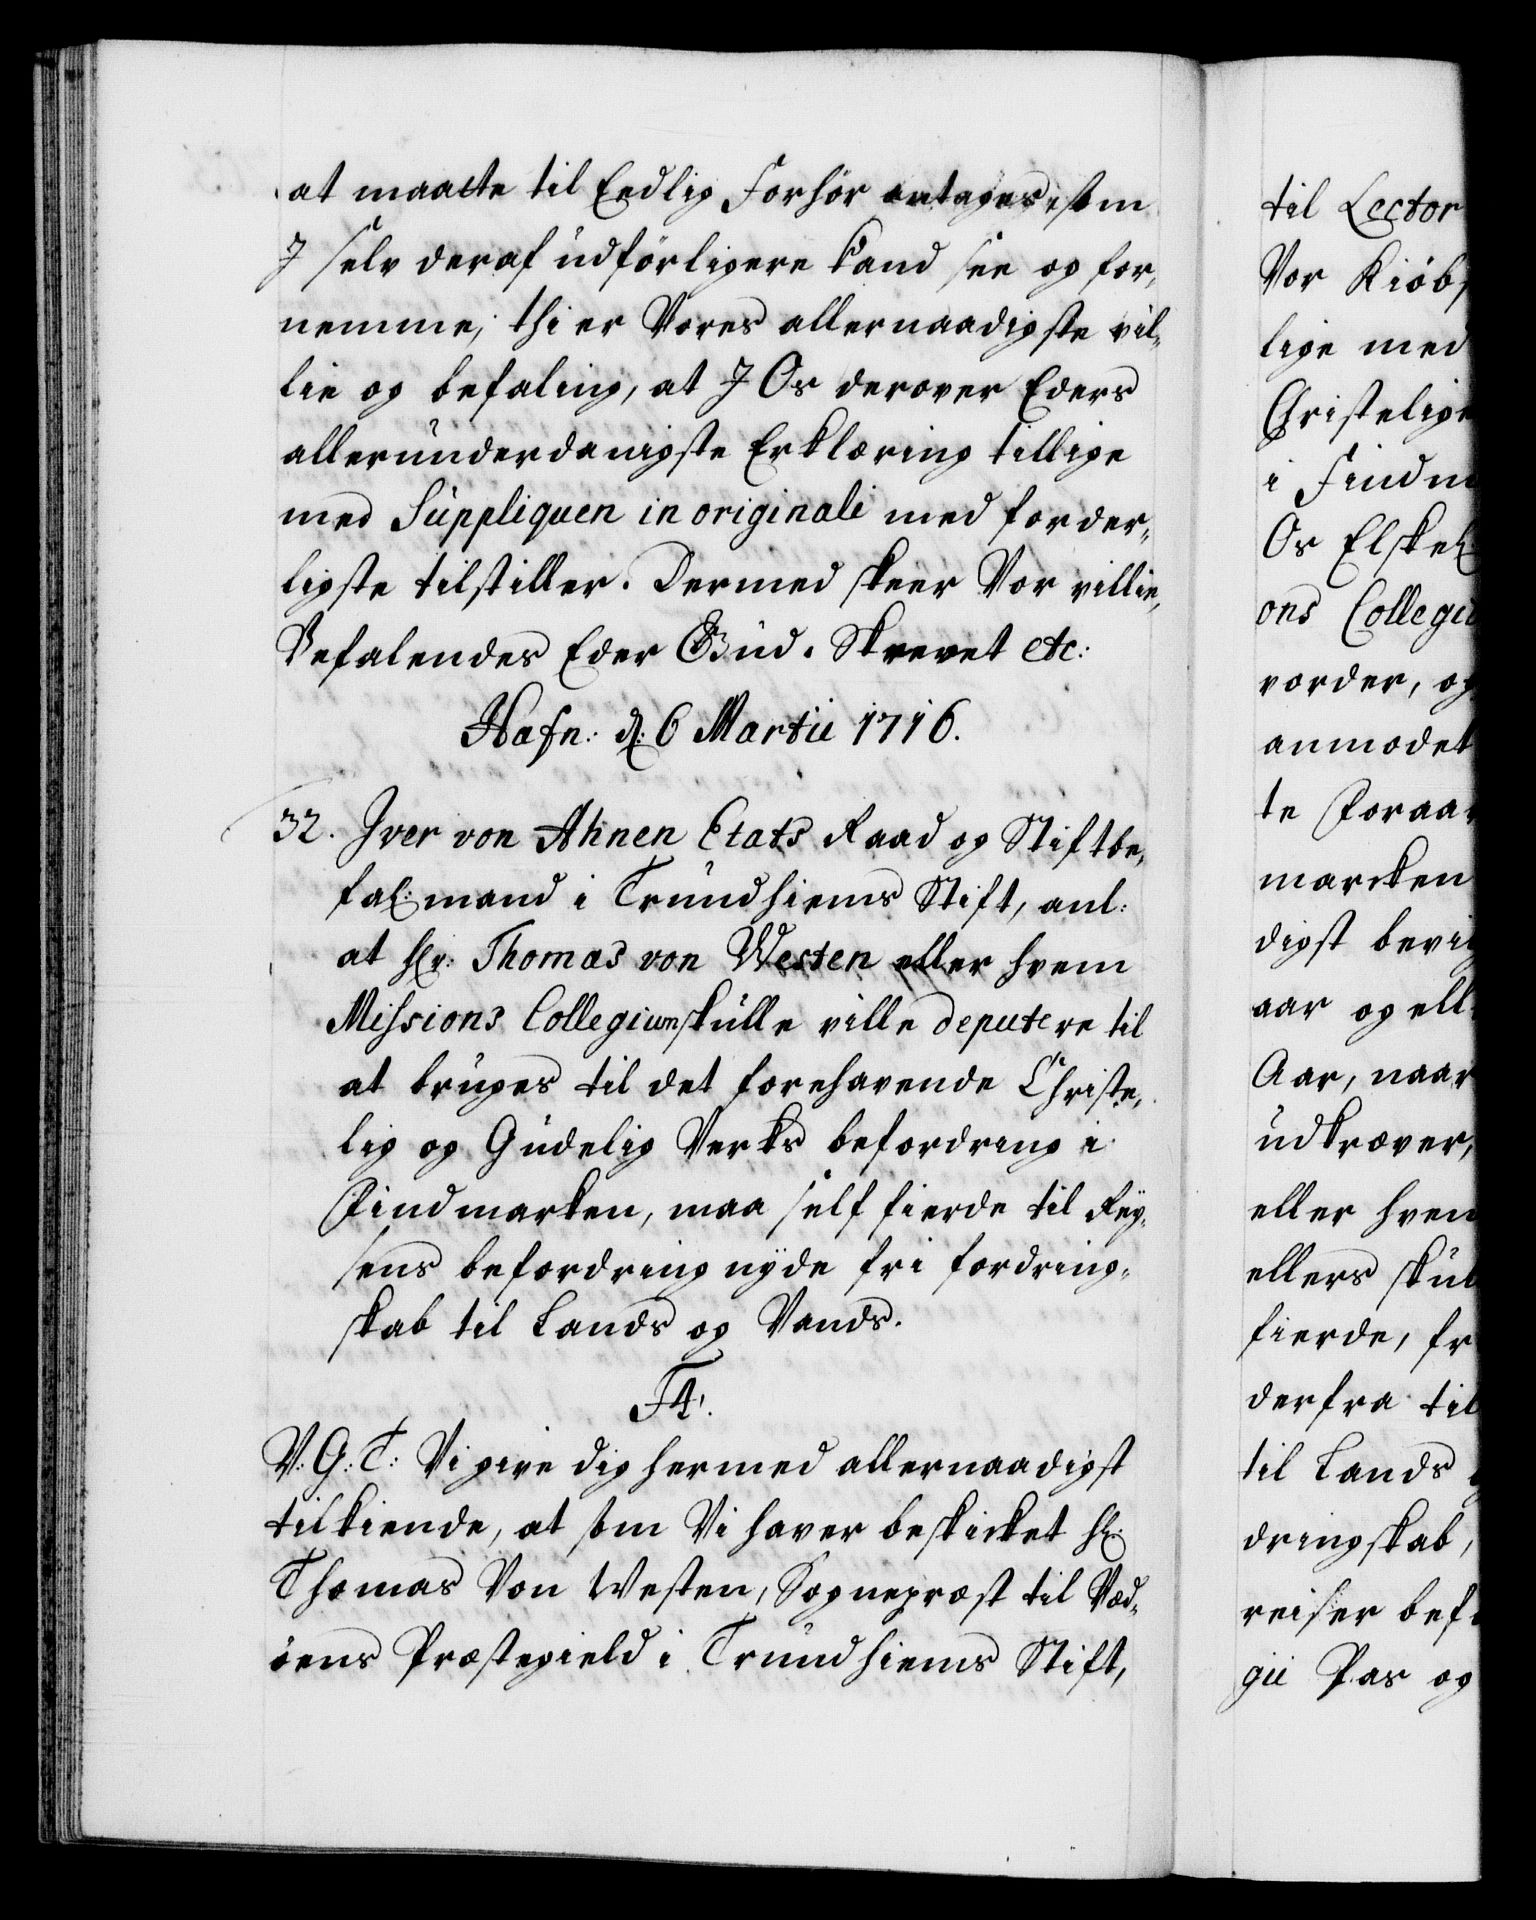 at maatte til Eedlig Forhör antages, som
J selv deraf udförligere kand see og for,
nemme; thi er Vores allernaadigste vil,
lie og befaling, at J Os derover Eders
allerunderdanigste Erklæring tillige
med Suppliquen in originali med forder,
ligste tilstiller. Dermed skeer Vor villie,
Befalendes Eder Gud. Skrevet etc:
Hafn: d: 6 Martii 1716.
32. Jver von Ahnen Etats Raad og Stiftbe,
fal: mand i Trundhiems Stift, anl:
at Hr: Thomas von Westen eller hvem
Missions Collegium skulle ville deputere til
at bruges til det forehavende Christe,
lig og Gudelig Verks befordring i
Findmarken, maa self fierde til Rey,
sens befordring nyde fri fordring,
skab til Lands og Vands.
F4.
V: G: T: Vi give dig hermed allernaadigst
tilkiende, at som Vi haver beskicket Hr:
Thomas Von Westen, Sognepræst til Væd,
öens Præstegield i Trundhiems Stift,
til Lector
Vor Kiöb,
lige med
Christelige
i Findm
Os Elskel:
ons Collegii
vorder, og
anmodet
te Foraar
marcken
digst bevil
aar og ell
Aar, naar
udkræver,
eller hvem
ellers skul
fierde, fr
derfra til
til Lands
dringskab,
reiser bef
gii Pas og